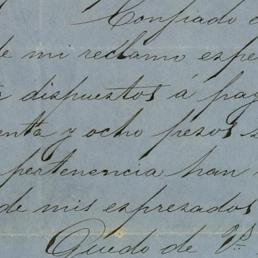 Confiado
de mi reclamo espe
dispuestos á pag
enta y ocho pesos s
pertenencia han
de mis espresados
Quedo de Vs